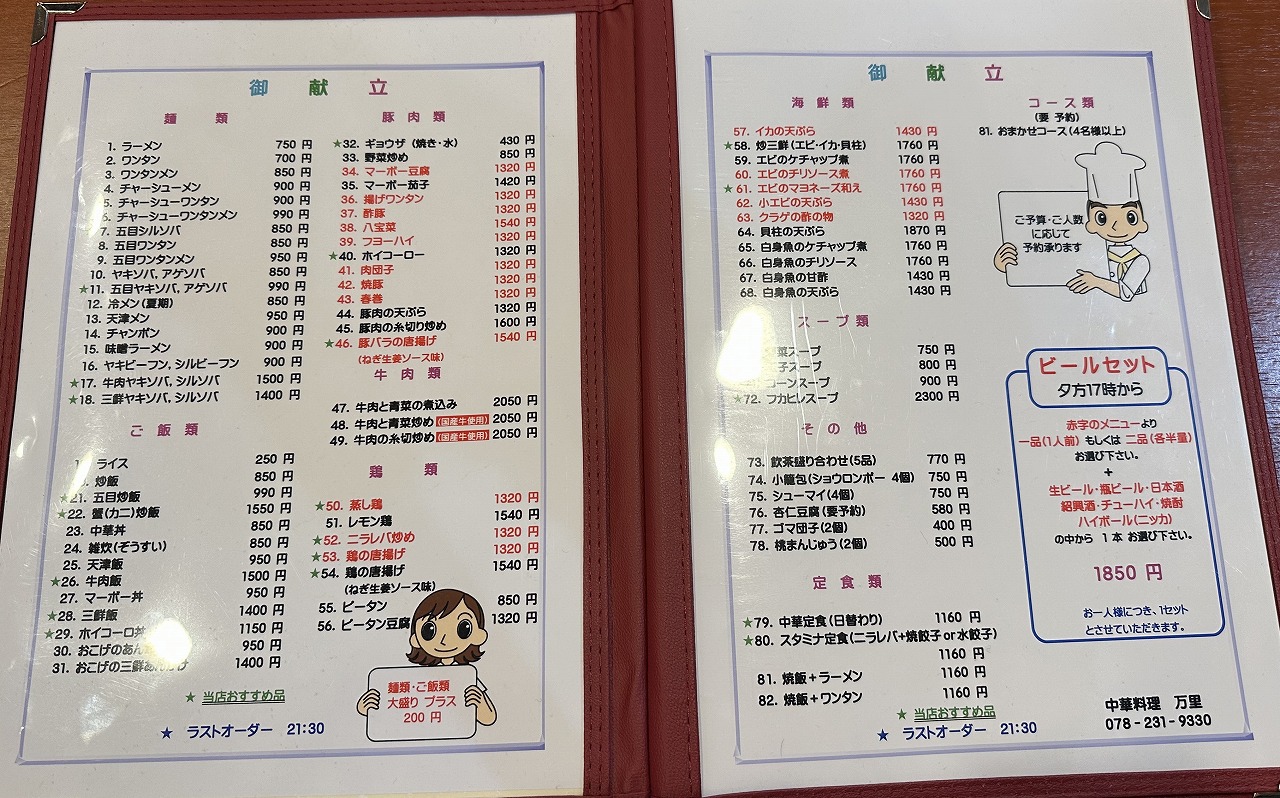 御献立
麺類
1. ラーメン 750 円
2. ワンタン 700 円
3. ワンタンメン 850 円
4. チャーシューメン 900 円
5. チャーシューワンタン 900 円
6. チャーシューワンタンメン 990 円
7. 五目シルソバ 850 円
8. 五目ワンタン 850 円
9. 五目ワンタンメン 950 円
10. ヤキソバ, アゲソバ 850 円
★11. 五目ヤキソバ, アゲソバ 990 円
12. 冷メン(夏期) 850 円
13. 天津メン 950 円
14. チャンポン 900 円
15. 味噌ラーメン 900 円
16. ヤキビーフン, シルビーフン 900 円
★17. 牛肉ヤキソバ, シルソバ 1500 円
★18. 三鮮ヤキソバ, シルソバ 1400 円
ご飯類
ライス 250 円
炒飯 850 円
★21. 五目炒飯 990 円
★22. 蟹(カニ)炒飯 1550 円
23. 中華丼 850 円
24. 雑炊(ぞうすい) 850 円
25. 天津飯 950 円
★26. 牛肉飯 1500 円
27. マーボー丼 950 円
★28. 三鮮飯 1400 円
★29. ホイコーロ丼 1150 円
30. おこげのあん 950 円
31. おこげの三鮮あんかけ 1400 円
★ 当店おすすめ品
★ ラストオーダー 21:30
豚肉類
★32. ギョウザ (焼き・水) 430 円
33. 野菜炒め 850 円
34. マーボー豆腐 1320 円
35. マーボー茄子 1420 円
36. 揚げワンタン 1320 円
37. 酢豚 1320 円
38. 八宝菜 1540 円
39. フヨーハイ 1320 円
★40. ホイコーロー 1320 円
41. 肉団子 1320 円
42. 焼豚 1320 円
43. 春巻 1320 円
44. 豚肉の天ぷら 1320 円
45. 豚肉の糸切り炒め 1600 円
★46. 豚バラの唐揚げ 1540 円
(ねぎ生姜ソース味)
牛肉類
47. 牛肉と青菜の煮込み 2050 円
48. 牛肉と青菜炒め (国産牛使用) 2050 円
49. 牛肉の糸切炒め (国産牛使用) 2050 円
鶏類
★50. 蒸し鶏 1320 円
51. レモン鶏 1540 円
★52. ニラレバ炒め 1320 円
★53. 鶏の唐揚げ 1320 円
★54. 鶏の唐揚げ 1540 円
(ねぎ生姜ソース味)
55. ピータン 850 円
56. ピータン豆腐 1320 円
麺類・ご飯類
大盛り プラス
200 円
御献立
海鮮類
57. イカの天ぷら 1430 円
★58. 炒三鮮(エビ・イカ・貝柱) 1760 円
59. エビのケチャップ煮 1760 円
60. エビのチリソース煮 1760 円
★61. エビのマヨネーズ和え 1760 円
62. 小エビの天ぷら 1430 円
63. クラゲの酢の物 1320 円
64. 貝柱の天ぷら 1870 円
65. 白身魚のケチャップ煮 1760 円
66. 白身魚のチリソース 1760 円
67. 白身魚の甘酢 1430 円
68. 白身魚の天ぷら 1430 円
スープ類
菜スープ 750 円
子スープ 800 円
コーンスープ 900 円
★72. フカヒレスープ 2300 円
その他
73. 飲茶盛り合わせ(5品) 770 円
74. 小籠包(ショウロンポー 4個) 750 円
75. シューマイ(4個) 750 円
76. 杏仁豆腐(要予約) 580 円
77. ゴマ団子(2個) 400 円
78. 桃まんじゅう(2個) 500 円
定食類
★79. 中華定食(日替わり) 1160 円
★80. スタミナ定食(ニラレバ+焼餃子or水餃子)
1160 円
81. 焼飯+ラーメン 1160 円
82. 焼飯+ワンタン 1160 円
★ 当店おすすめ品
★ ラストオーダー 21:30
コース類
(要 予約)
81. おまかせコース(4名様以上)
ご予算・ご人数
に応じて
予約承ります
ビールセット
夕方17時から
赤字のメニューより
一品(1人前) もしくは 二品(各半量)
お選び下さい。
+
生ビール・瓶ビール・日本酒
紹興酒・チューハイ・焼酎
ハイボール(ニッカ)
の中から 1 本 お選び下さい。
1850 円
お一人様につき、1セット
とさせていただきます。
中華料理 万里
078-231-9330